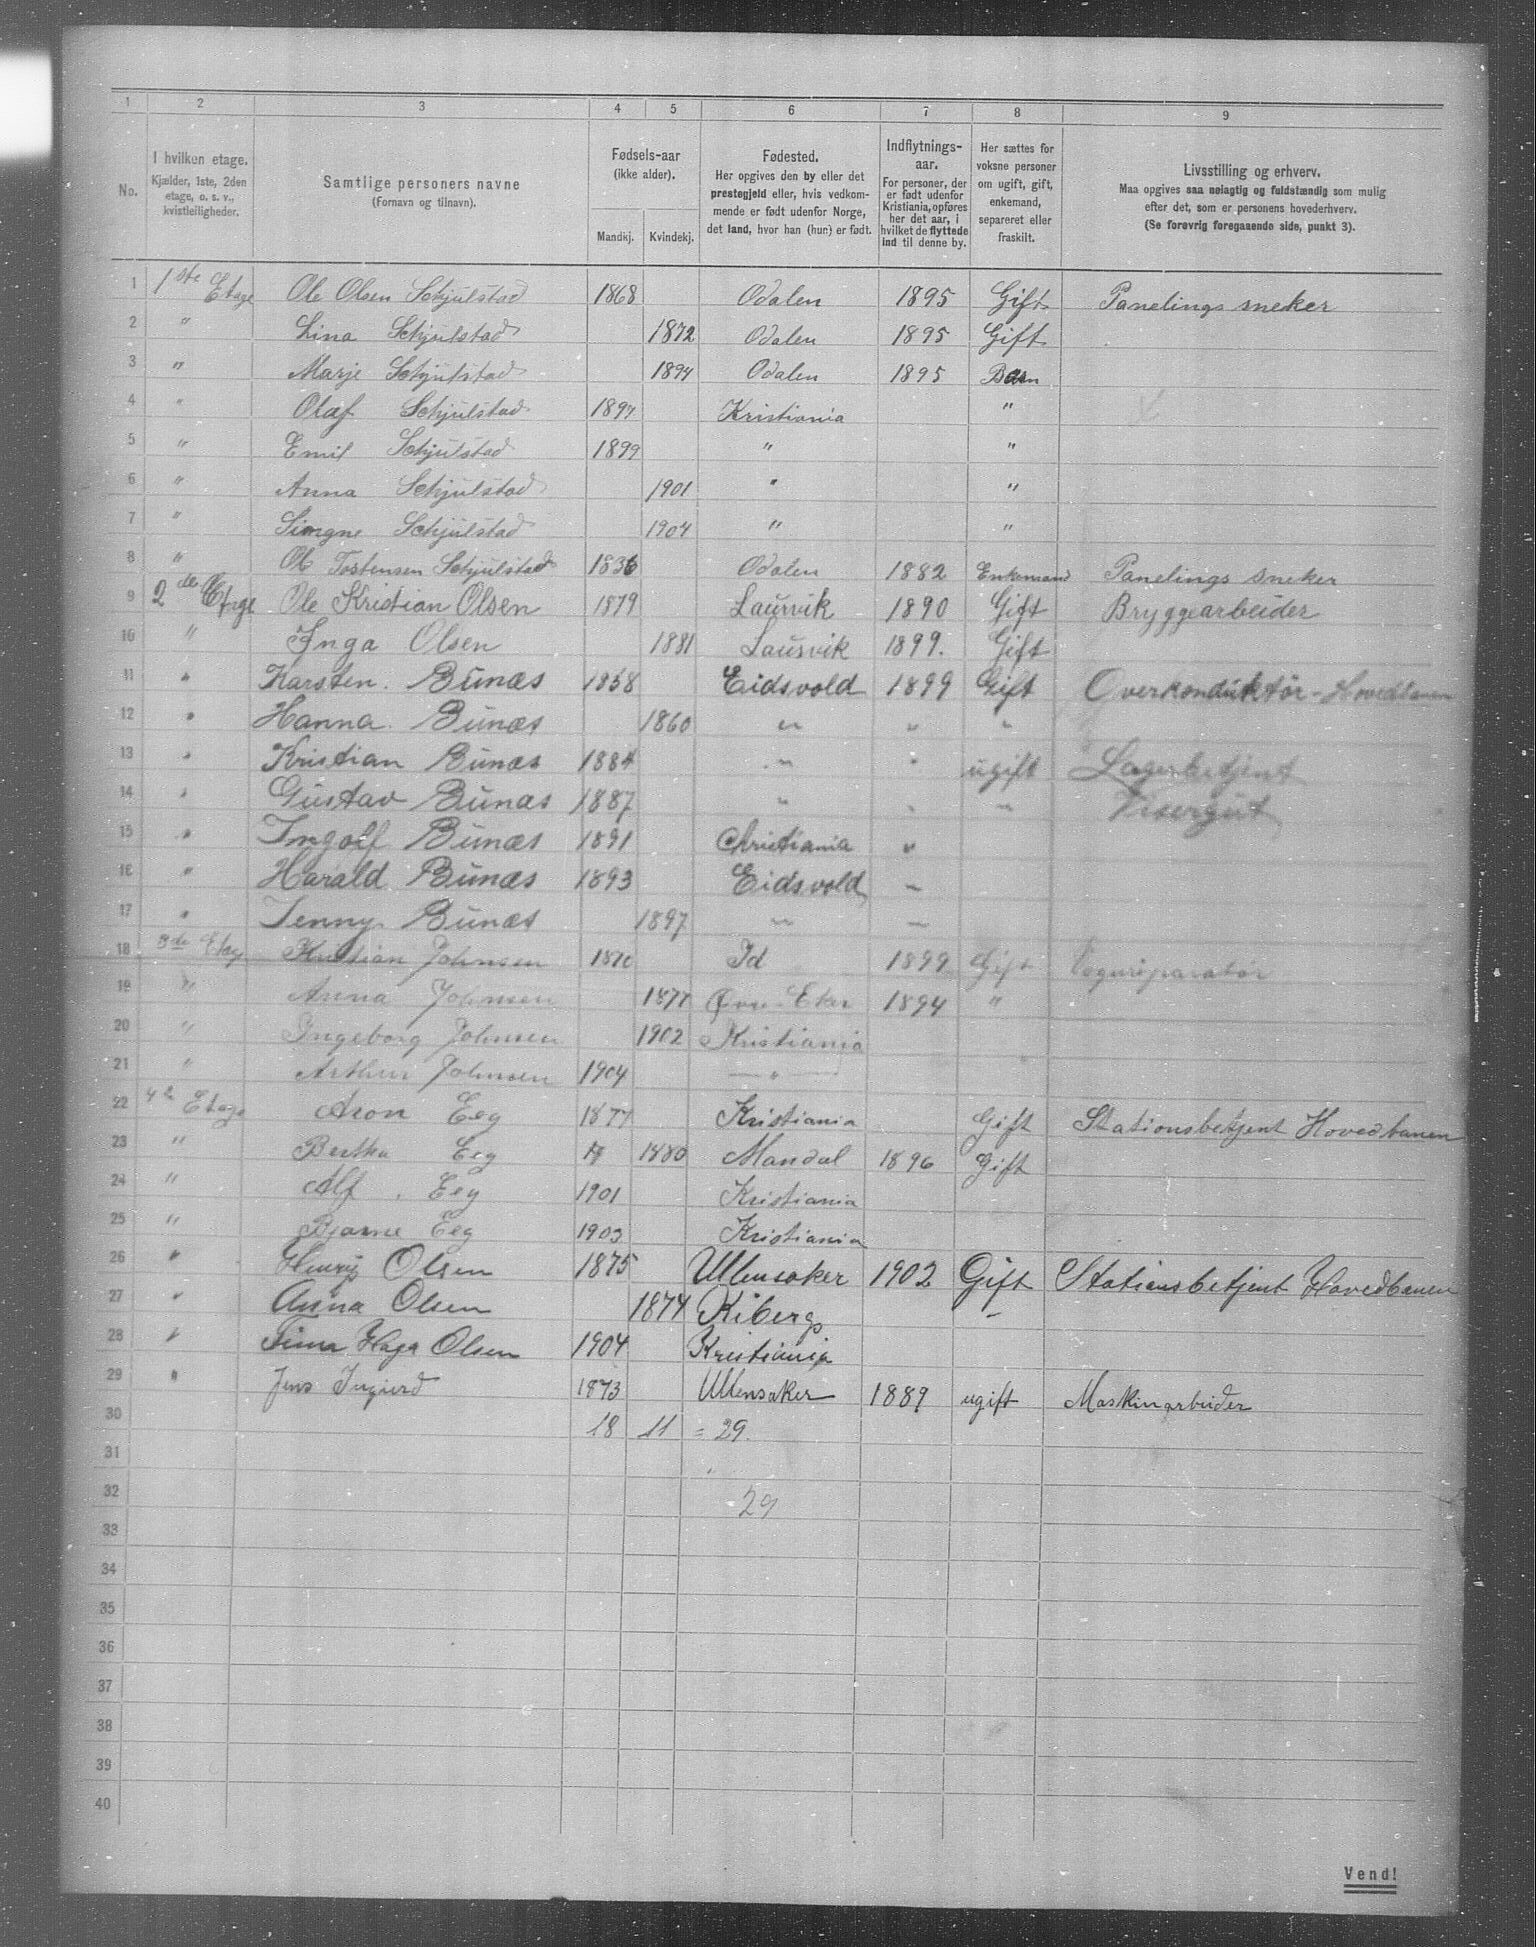 1 2 3 4 5 6 7 8 9
No.
I hvilken etage.
Kjælder, 1ste, 2den
etage, o. s. v.,
kvistleiligheder.
Samtlige personers navne
(Fornavn og tilnavn).
Fødsels-aar
(ikke alder).
Mandkj. Kvindekj.
Fødested.
Her opgives den by eller det
prestegjeld eller, hvis vedkom-
mende er født udenfor Norge,
det land, hvor han (hun) er født.
Indflytnings-
aar.
For personer, der
er født udenfor
Kristiania, opføres
her det aar, i
hvilket de flyttede
ind til denne by.
Her sættes for
voksne personer
om ugift, gift,
enkemand,
separeret eller
fraskilt.
Livsstilling og erhverv.
Maa opgives saa nøiagtig og fuldstændig som mulig
efter det, som er personens hovederhverv.
(Se forøvrig foregaaende side, punkt 3).
1 1ste Etage Ole Olsen Schjulstad 1868 Odalen 1895 Gift Panelings sneker
2 " Lina Schjulstad 1872 Odalen 1895 Gift
3 " Marje Schjulstad 1894 Odalen 1895 Barn
4 " Olaf Schjulstad 1897 Kristiania "
5 " Emil Schjulstad 1899 " "
6 " Anna Schjulstad 1901 " "
7 " Singne Schjulstad 1904 " "
8 " Ole Tostensen Schjulstad 1836 Odalen 1882 Enkemand Panelings sneker
9 2de Etage Ole Kristian Olsen 1879 Laurvik 1890 Gift Bryggearbeider
10 " Inga Olsen 1881 Laurvik 1899. Gift
11 " Karsten. Bunæs 1858 Eidsvold 1899 Gift Overkonduktør - Hovedbanen
12 " Hanna. Bunæs 1860 " " "
13 " Kristian Bunæs 1884 " " ugift Lagerbetjent
14 " Gustav Bunæs 1887 " " " Visergut
15 " Ingolf Bunæs 1891 Christiania "
16 " Harald Bunæs 1893 Eidsvold "
17 " Jenny Bunæs 1897 " "
18 3de Etag Kristian Johnsen Id 1899 Gift
19 " Anna Johnsen 1877 Øvre Eker 1894 "
20 " Ingeborg Johnsen 1902 Kristiania
21 " Arthur Johnsen 1904 — " —
22 4de Etage Aron Eeg 1877 Kristiania Gift Stationsbetjent Hovedbanen
23 " Bertha Eeg 1880 Mandal 1896 Gift
24 " Alf Eeg 1901 Kristiania
25 " Bjarne Eeg 1903 Kristiania
26 " Henry Olsen 1875 Ullensaker 1902 Gift Stationsbetjent Hovedbanen
27 " Anna Olsen 1874 Kibergs "
28 " Haga Olsen 1904 Kristiania
29 " Jens 1873 Ullensaker 1889 ugift Maskinarbeider
30 18 11 = 29.
31
32 29
33
34
35
36
37
38
39
40
Vend!